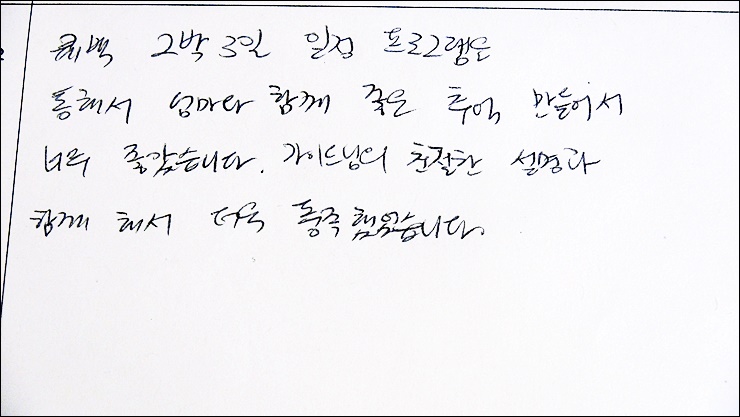 태백 2박 3일 일정 프로그램은
통해서 엄마와 함께 좋은 추억 만들어서
너무 좋았습니다. 가이드님의 친절한 설명과
함께 해서 더욱 흥미로웠습니다.